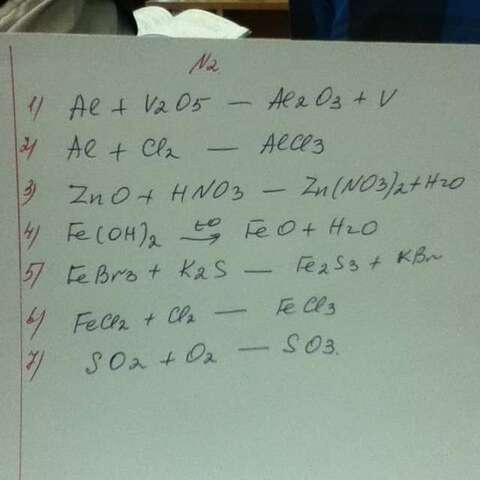 N2
1) Al + V2O5 — Al2O3 + V
2) Al + Cl2 — AlCl3
3) ZnO + HNO3 — Zn(NO3)2 + H2O
4) Fe(OH)2 t0→ FeO + H2O
5) FeBr3 + K2S — Fe2S3 + KBr
6) FeCl2 + Cl2 — FeCl3
7) SO2 + O2 — SO3.